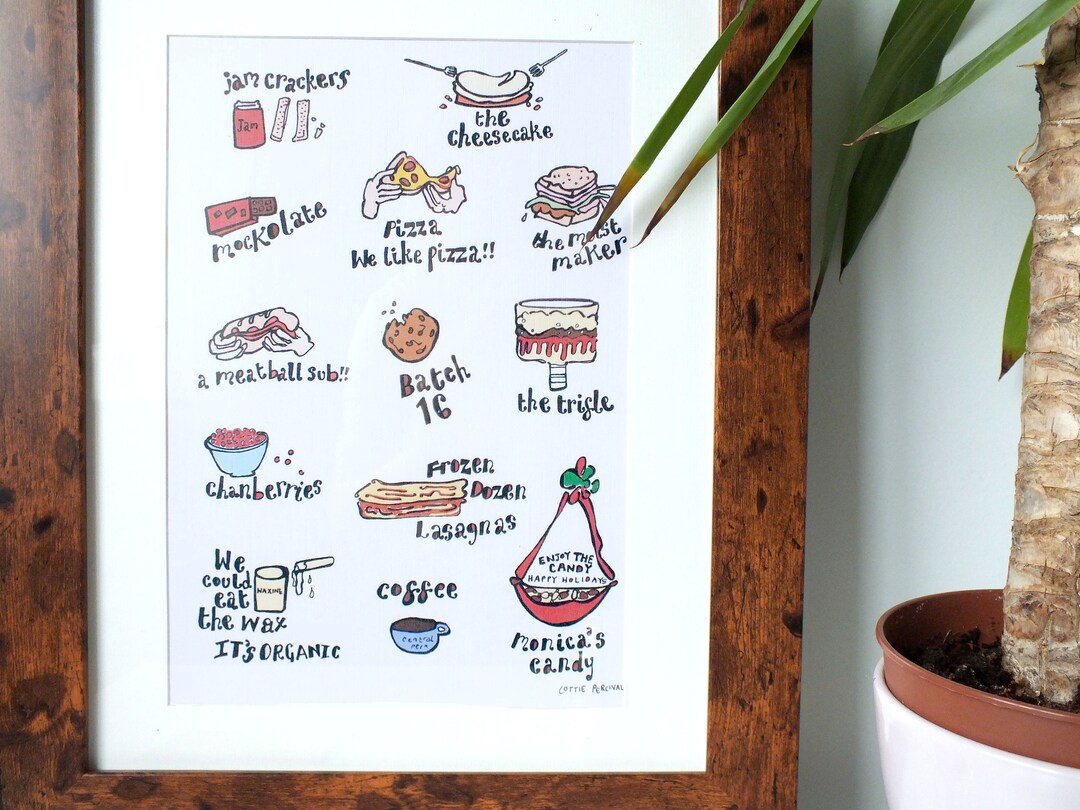 jam crackers
Jam
the
cheesecake
mockolate
Pizza
We like pizza!!
the moist
maker
a meatball sub!!
Batch
16
the trifle
chanberries
Frozen
Dozen
Lasagnas
We
could
eat
the wax
WAXINE
IT'S ORGANIC
coffee
central
perk
ENJOY THE
CANDY
HAPPY HOLIDAYS
monica's
candy
LOTTIE PERCIVAL